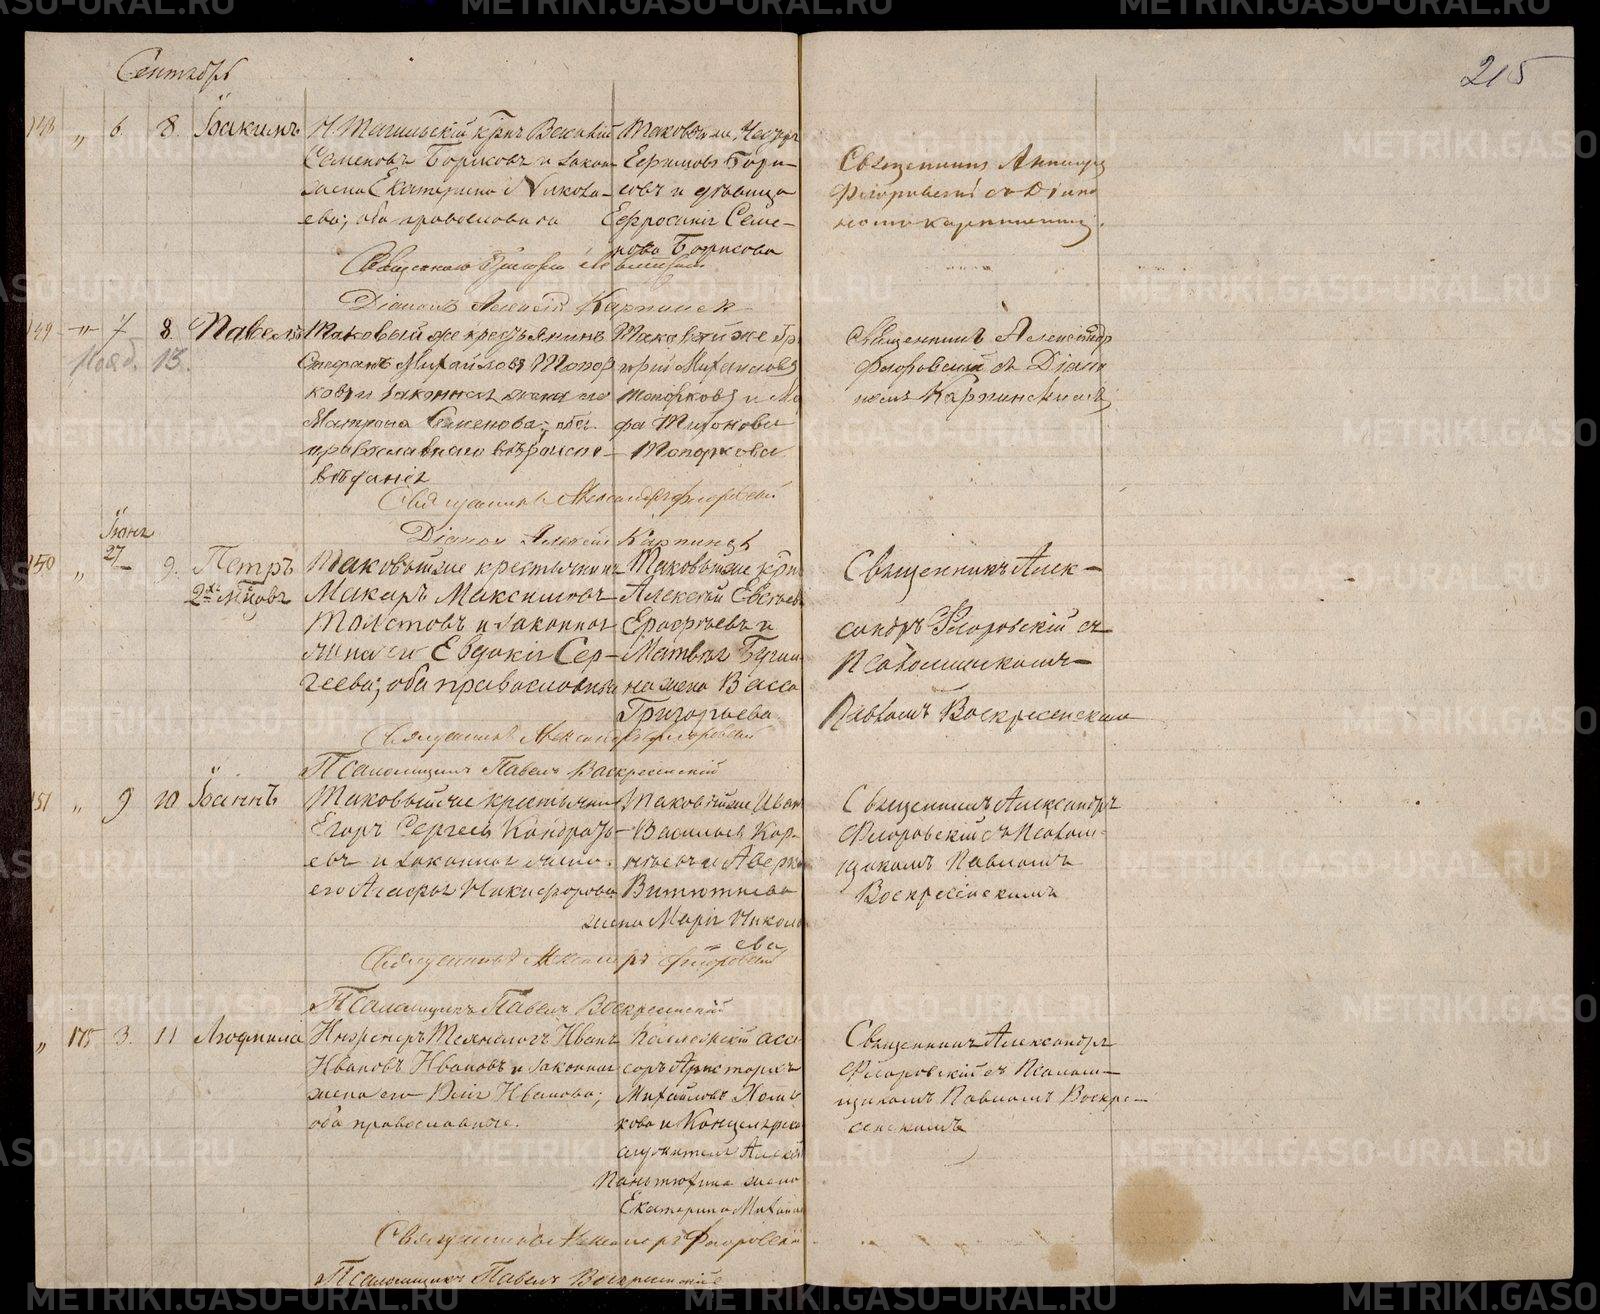 Сентябрь
215
148 " 6. 8. Іоакимъ
Н. Тагильскій крнъ Василій
Семеновъ Борисовъ и закон
жена Екатерина Никола-
ева; оба православна
Таковые
Ефимовъ Бори-
совъ и дѣвица
Ефросинія Семе-
нова Борисова
Священникъ
Флоровскій съ Діако
Діаконъ Алексій Карпинск
149 -"- 7 8. Павелъ
13.
Таковый же крестьянинъ
Стефанъ Михайловъ Топор
ковъ и законная жена его
Матрона Семенова; оба
православнаго вѣроиспо-
вѣданія
Таковый же
Михайловъ
Топорковъ и
Тихонова
Топоркова
Священникъ Александръ
Флоровскій съ Діако
номъ Карпинскимъ
Священникъ Александръ Флоровскій
Діакон Алексій Карпинск
Іюня
27
150 " 9. Петръ
2хъ мцовъ
Таковый же крестьянин
Макаръ Максимовъ
Толстовъ и законная
жена его Евдокія Сер-
геева; оба православные
Таковый же крн
Алексѣй Евстаев
Ерофѣевъ и
Матвѣя
на жена Васса
Григорьева.
Священникъ Алек-
сандръ Флоровскій съ
Псаломщикомъ
Павломъ Воскресенским
Священникъ Александръ Флоровскій
Псаломщикъ Павелъ Воскресенскій
151 " 9 10 Іоаннъ
Таковый же крестьянин
Егоръ Сергеев Кондрать-
евъ и законная жена
его Агафья Никифорова
Таковый же Иван
Васильев Кор-
нѣевъ и
жена Марія Никола
ева
Священникъ Александръ
Флоровскій съ Псалом-
щикомъ Павломъ
Воскресенскимъ
Священникъ Александръ Флоровскій
Псаломщикъ Павелъ Воскресенскій
" 175 3. 11 Людмила
Инженеръ Технологъ Иванъ
Ивановъ Ивановъ и законная
жена его Юлія Иванова;
оба православные.
Коллежскій асес
соръ Аристархъ
Михайловъ Хомя
ковъ и Канцелярска
служителя Алексѣя
Панютина жена
Екатерина Михайл
Священникъ Александръ
Флоровскій съ Псалом-
щикомъ Павломъ Воскре-
сенскимъ
Священникъ Александръ Флоровскій
Псаломщикъ Павелъ Воскресенскій
METRIKI.GASO-URAL.RU